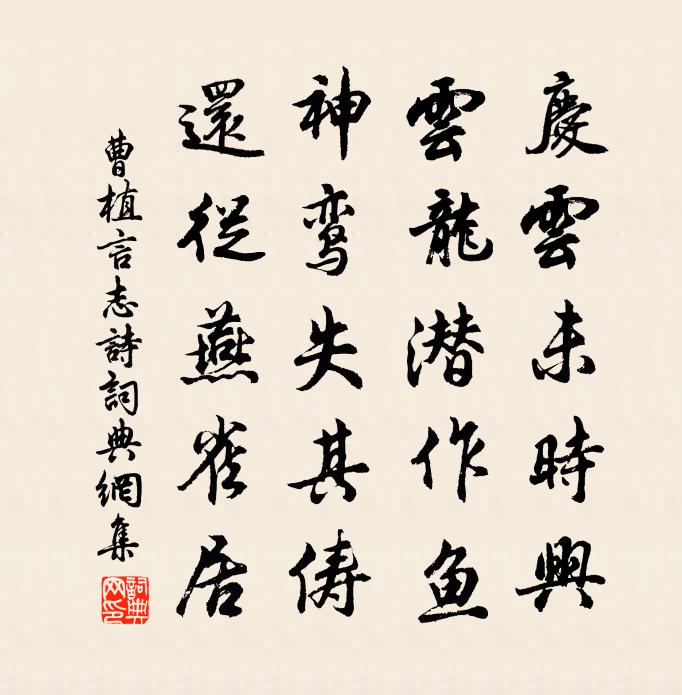 慶雲未時興
雲龍潜作鱼
神鸾失其俦
還從燕雀居
曹植言志詩詞典網集
詞典網印